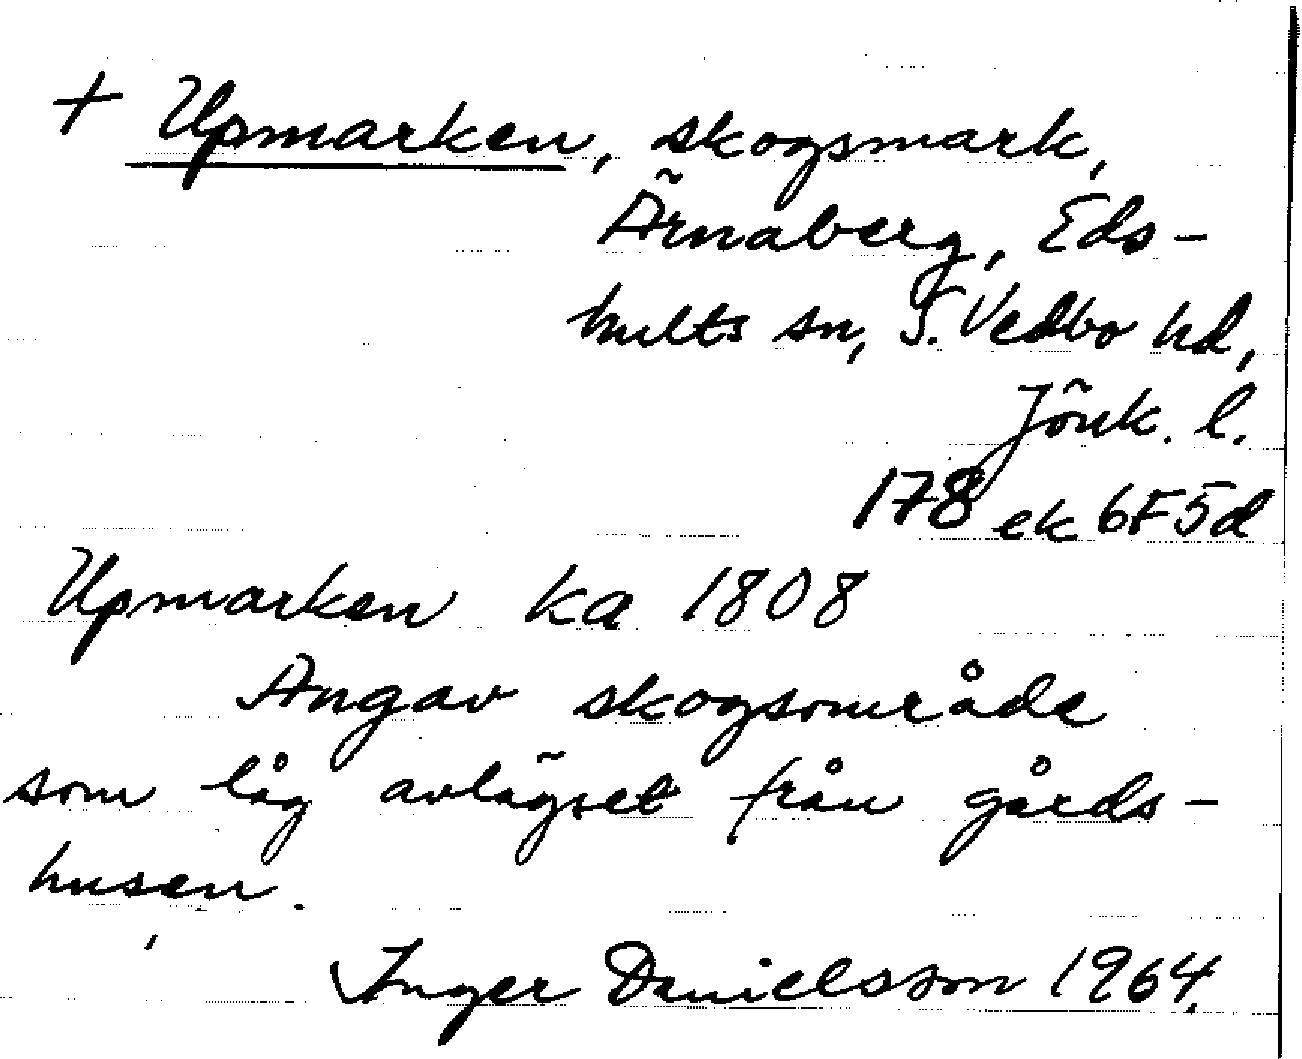 + Upmarken, skogsmark,
Ärnaberg, Eds-
hults sn, S. Vedbo hd,
Jönk. l.
178 ek 6F5d
Upmarken ka 1808
Angav skogsområde
som låg avlägset från gårds-
husen.
Inger Danielsson 1964.